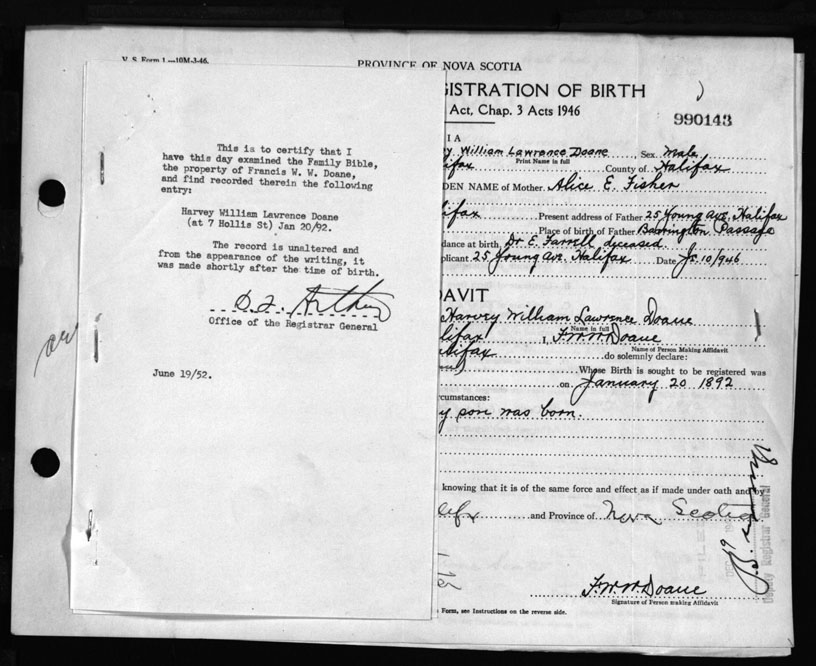 V. S. Form 1.—10M-3-46.
PROVINCE OF NOVA SCOTIA
GISTRATION OF BIRTH
Act, Chap. 3 Acts 1946
990143
This is to certify that I
have this day examined the Family Bible,
the property of Francis W. W. Doane,
and find recorded therein the following
entry:
Harvey William Lawrence Doane
(at 7 Hollis St) Jan 20/92.
The record is unaltered and
from the appearance of the writing, it
was made shortly after the time of birth.
Office of the Registrar General
June 19/52.
I A
y William Lawrence Doane Sex Male
Print Name in full
ifax County of Halifax
DEN NAME of Mother. Alice E. Fisher
ifax Present address of Father 25 Young Ave. Halifax
Place of birth of Father Barrington Passage
dance at birth, Dr E. Farrell deceased.
plicant. 25 Young Ave. Halifax Date
DAVIT
Harvey William Lawrence Doane
Name in full
lifax I, F.W.W. Doane
Name of Person Making Affidavit
alifax do solemnly declare:
Whose Birth is sought to be registered was
on January 20 1892
rcumstances:
y son was born.
knowing that it is of the same force and effect as if made under oath and by
lifx and Province of Nova Scotia
Deputy Registrar General
F.W.W. Doane
Signature of Person making Affidavit
Form, see Instructions on the reverse side.